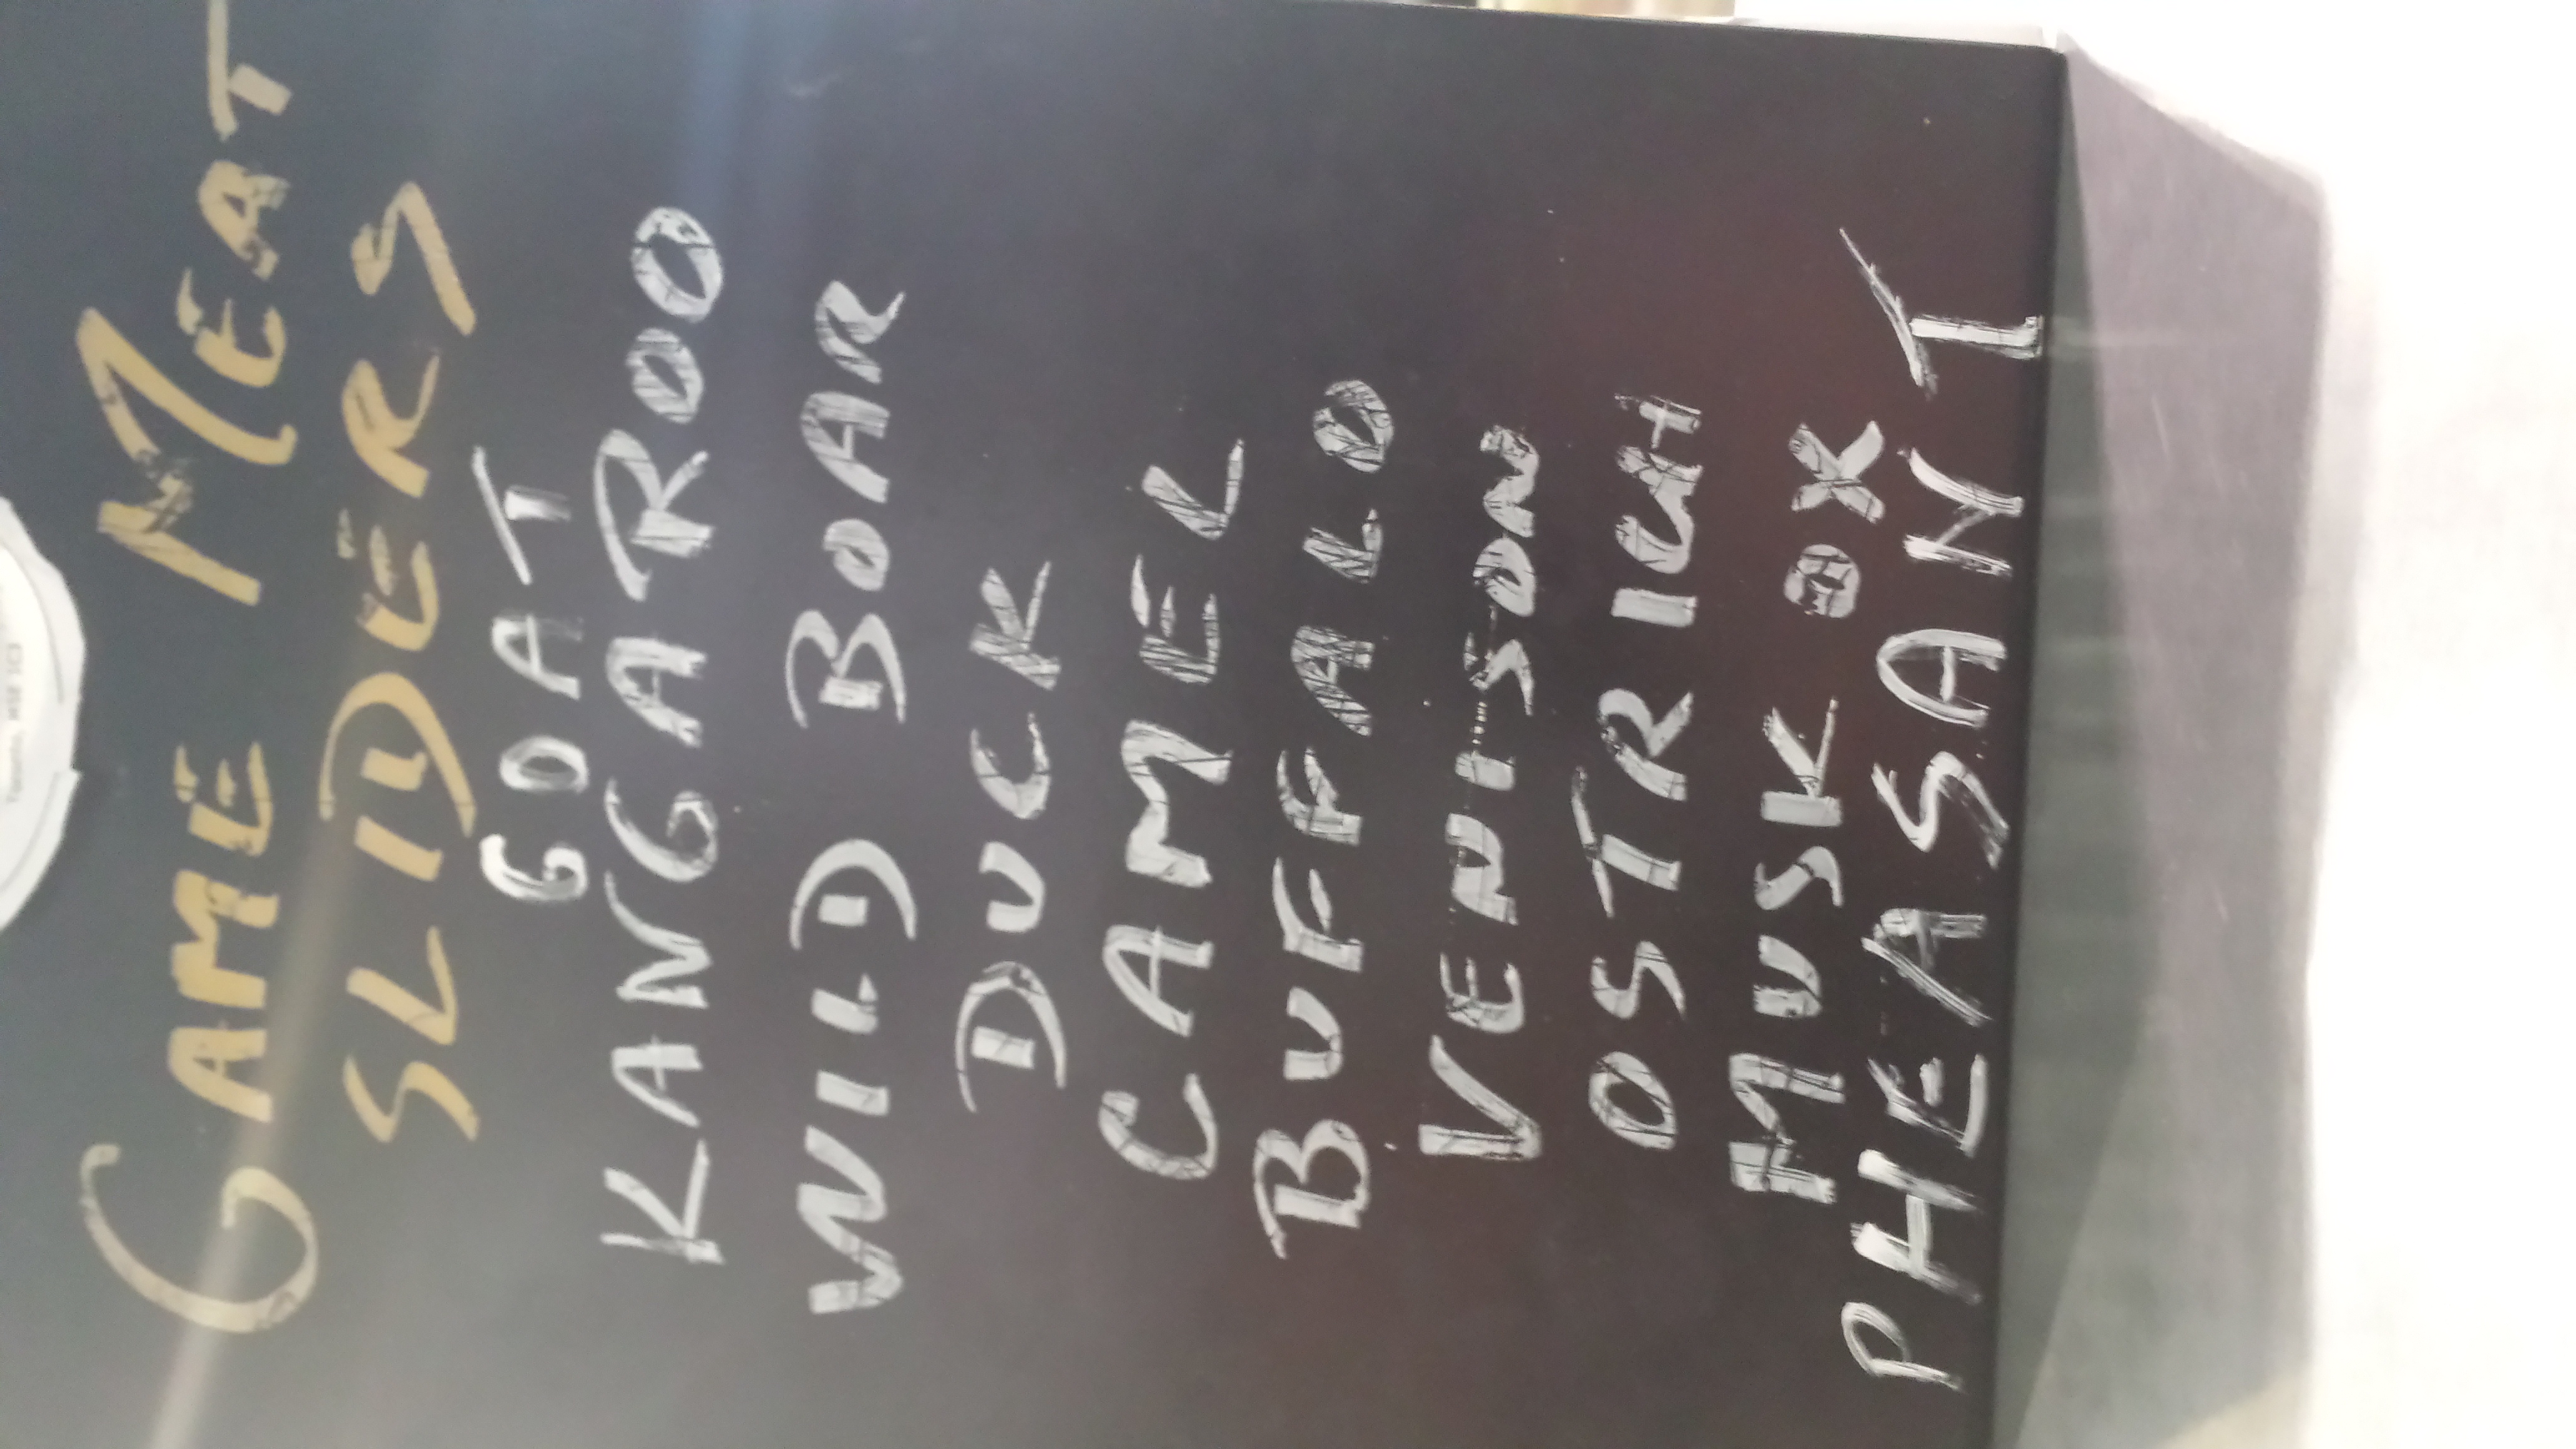 GAME MEAT
SLIDERS
GOAT
KANGAROO
WILD BOAR
DUCK
CAMEL
BUFFALO
VENISON
OSTRICH
MUSK OX
PHEASANT